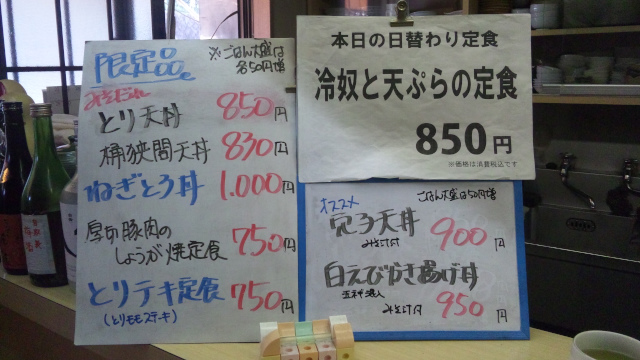 限定品。
※ごはん大盛は
各50円増
みそだれ
とり天丼 850円
桶狭間天丼 830円
ねぎとろ丼 1.000円
厚切豚肉の
しょうが焼定食 750円
とりテキ定食 750円
(とりモモステーキ)
本日の日替わり定食
冷奴と天ぷらの定食
850円
※価格は消費税込です
オススメ
ごはん大盛は50円増
穴子天丼 900円
みそ汁付
白えびかき揚げ丼 950円
みそ汁付